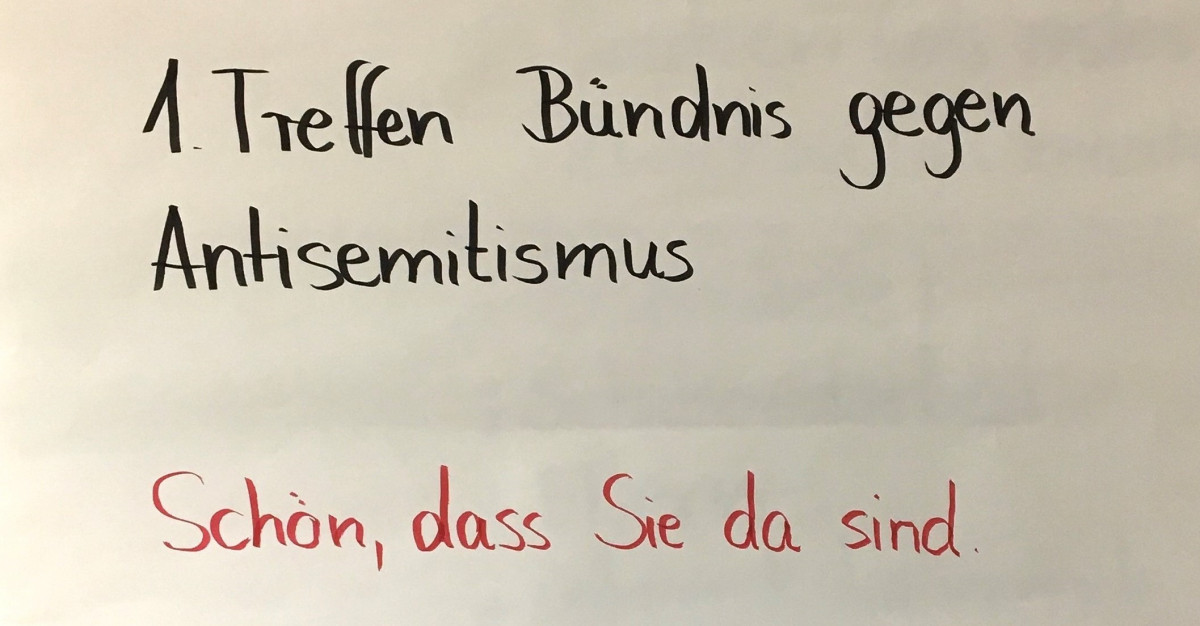 1. Treffen Bündnis gegen
Antisemitismus
Schön, dass Sie da sind.